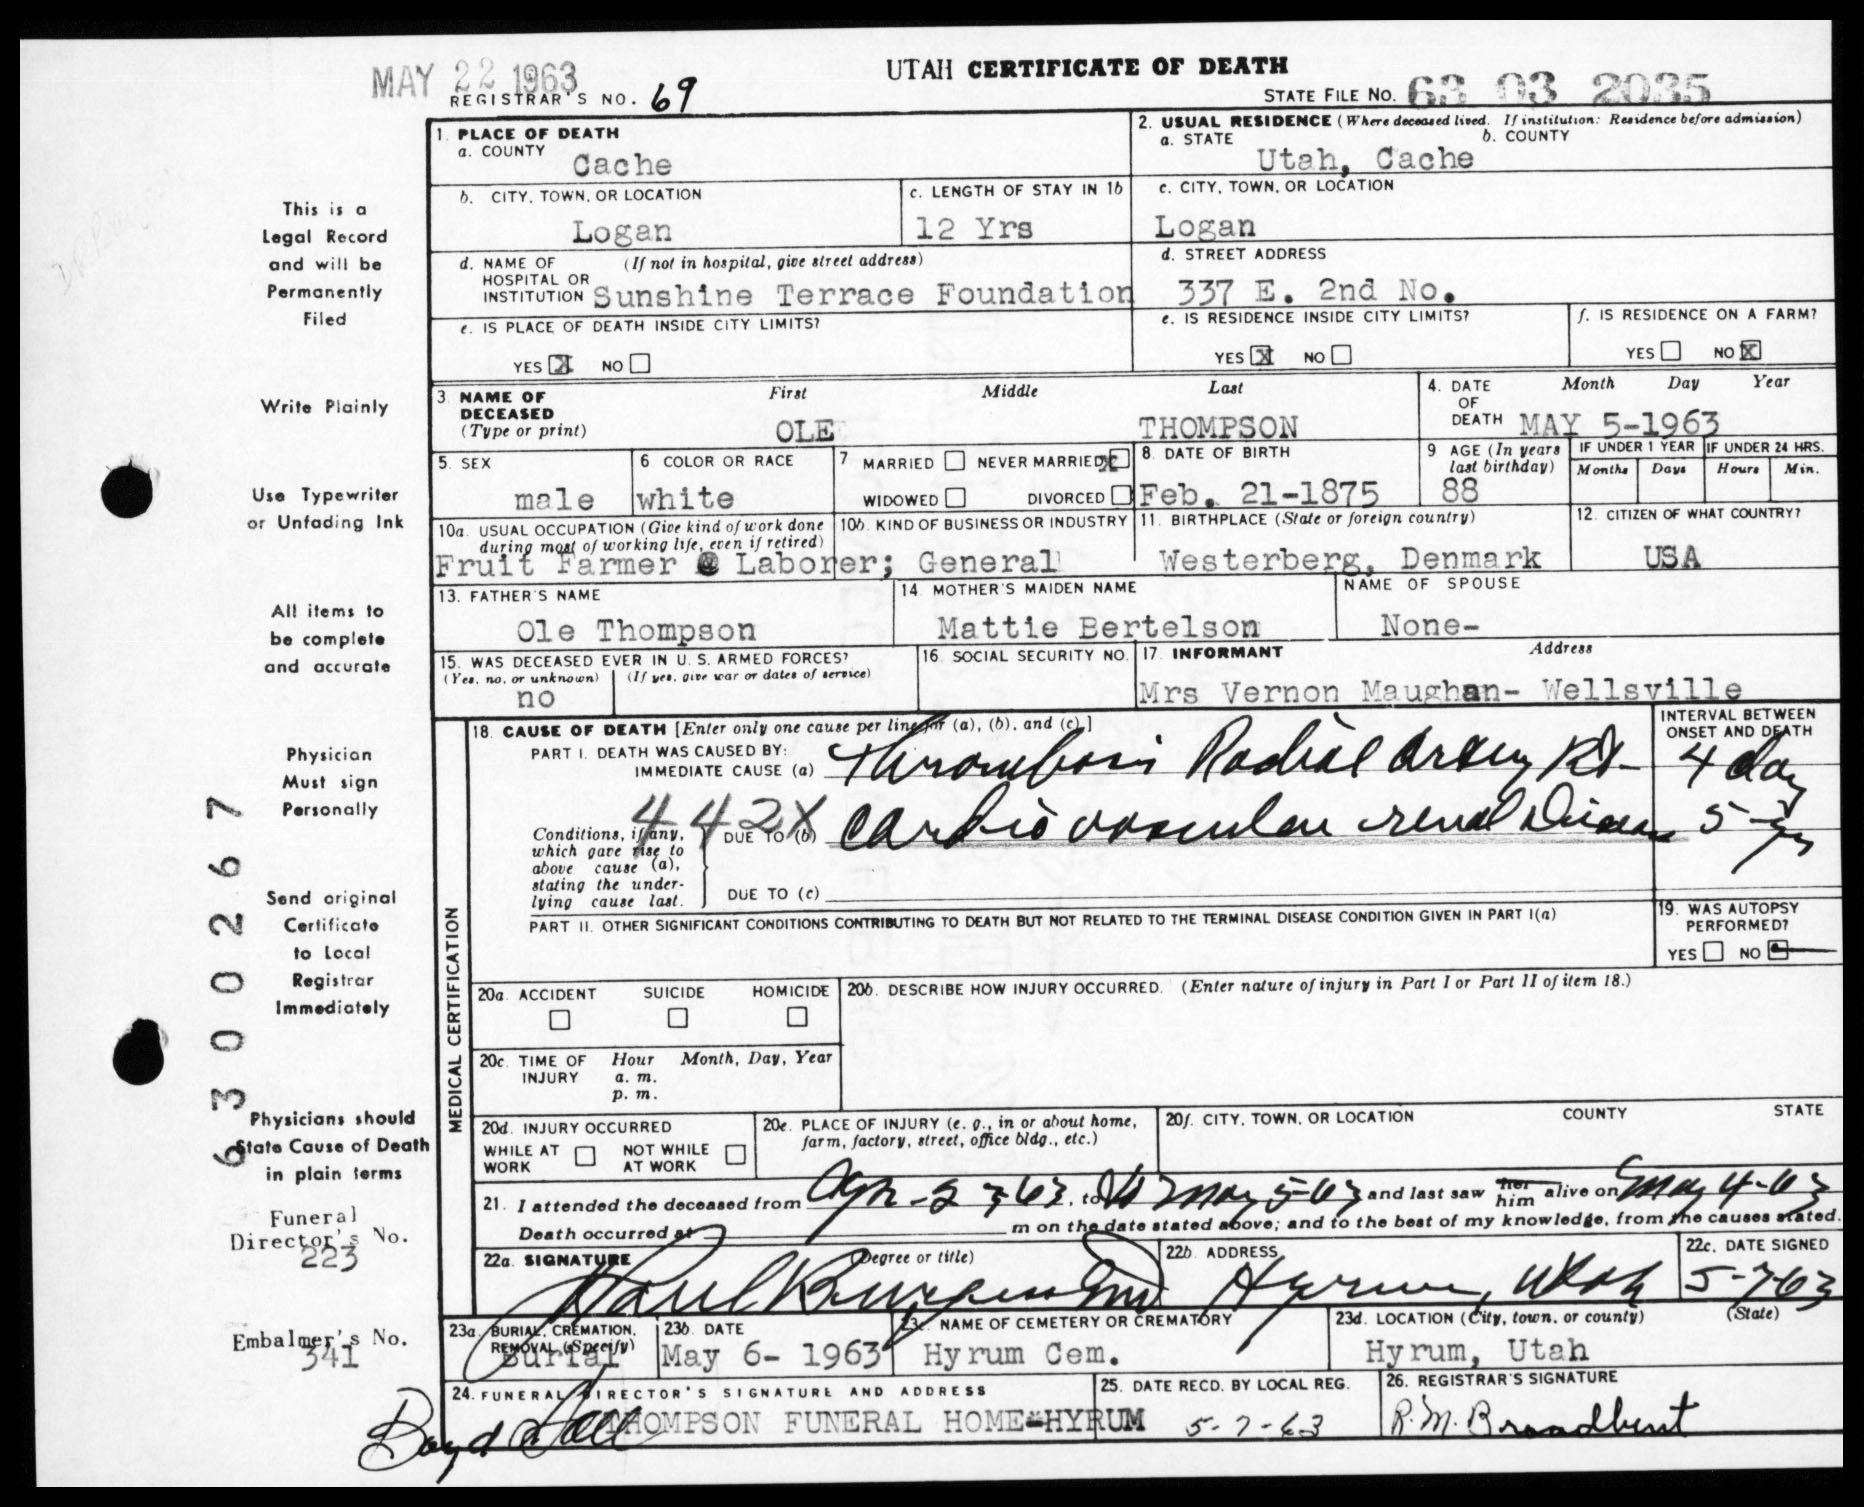 MAY 22 1963
UTAH CERTIFICATE OF DEATH
REGISTRAR'S NO. 69
STATE FILE NO. 63 03 2035
1. PLACE OF DEATH
a. COUNTY Cache
2. USUAL RESIDENCE (Where deceased lived. If institution: Residence before admission)
a. STATE b. COUNTY
Utah, Cache
b. CITY, TOWN, OR LOCATION
Logan
c. LENGTH OF STAY IN 1b
12 Yrs
c. CITY, TOWN, OR LOCATION
Logan
d. NAME OF HOSPITAL OR INSTITUTION (If not in hospital, give street address)
Sunshine Terrace Foundation
d. STREET ADDRESS
337 E. 2nd No.
e. IS PLACE OF DEATH INSIDE CITY LIMITS?
YES X NO
e. IS RESIDENCE INSIDE CITY LIMITS?
YES X NO
f. IS RESIDENCE ON A FARM?
YES NO X
3. NAME OF DECEASED (Type or print)
First Middle Last
OLE THOMPSON
4. DATE OF DEATH Month Day Year
MAY 5-1963
5. SEX
male
6 COLOR OR RACE
white
7 MARRIED NEVER MARRIED X
WIDOWED DIVORCED
8. DATE OF BIRTH
Feb. 21-1875
9 AGE (In years last birthday)
88
IF UNDER 1 YEAR IF UNDER 24 HRS.
Months Days Hours Min.
10a. USUAL OCCUPATION (Give kind of work done during most of working life, even if retired)
10b. KIND OF BUSINESS OR INDUSTRY
Fruit Farmer @ Laborer; General
11. BIRTHPLACE (State or foreign country)
Westerberg, Denmark
12. CITIZEN OF WHAT COUNTRY?
USA
13. FATHER'S NAME
Ole Thompson
14. MOTHER'S MAIDEN NAME
Mattie Bertelson
NAME OF SPOUSE
None-
15. WAS DECEASED EVER IN U. S. ARMED FORCES?
(Yes, no, or unknown) (If yes, give war or dates of service)
no
16. SOCIAL SECURITY NO.
17. INFORMANT Address
Mrs Vernon Maughan- Wellsville
18. CAUSE OF DEATH [Enter only one cause per line for (a), (b), and (c).]
INTERVAL BETWEEN ONSET AND DEATH
PART I. DEATH WAS CAUSED BY:
IMMEDIATE CAUSE (a) Thrombosis Radial Artery Rt- 4 day
442X
Conditions, if any, which gave rise to above cause (a), stating the underlying cause last.
DUE TO (b) Cardio vascular renal Disease 5-yrs
DUE TO (c)
PART II. OTHER SIGNIFICANT CONDITIONS CONTRIBUTING TO DEATH BUT NOT RELATED TO THE TERMINAL DISEASE CONDITION GIVEN IN PART I(a)
19. WAS AUTOPSY PERFORMED?
YES NO
MEDICAL CERTIFICATION
20a. ACCIDENT SUICIDE HOMICIDE
20b. DESCRIBE HOW INJURY OCCURRED. (Enter nature of injury in Part I or Part II of item 18.)
20c. TIME OF INJURY Hour Month, Day, Year
a. m.
p. m.
20d. INJURY OCCURRED
WHILE AT WORK NOT WHILE AT WORK
20e. PLACE OF INJURY (e. g., in or about home, farm, factory, street, office bldg., etc.)
20f. CITY, TOWN, OR LOCATION COUNTY STATE
21. I attended the deceased from Apr-27-63, to May 5-63 and last saw her him alive on May 4-63
Death occurred at m on the date stated above; and to the best of my knowledge, from the causes stated.
22a. SIGNATURE (Degree or title)
Paul Burgess MD
22b. ADDRESS
Hyrum, Utah
22c. DATE SIGNED
5-7-63
23a. BURIAL, CREMATION, REMOVAL (Specify)
Burial
23b. DATE
May 6- 1963
23c. NAME OF CEMETERY OR CREMATORY
Hyrum Cem.
23d. LOCATION (City, town, or county) (State)
Hyrum, Utah
24. FUNERAL DIRECTOR'S SIGNATURE AND ADDRESS
Boyd Hall THOMPSON FUNERAL HOME-HYRUM
25. DATE RECD. BY LOCAL REG.
5-7-63
26. REGISTRAR'S SIGNATURE
R.M. Broadbent
This is a
Legal Record
and will be
Permanently
Filed
Write Plainly
Use Typewriter
or Unfading Ink
All items to
be complete
and accurate
Physician
Must sign
Personally
Send original
Certificate
to Local
Registrar
Immediately
Physicians should
State Cause of Death
in plain terms
Funeral
Director's No.
223
Embalmer's No.
341
6300267